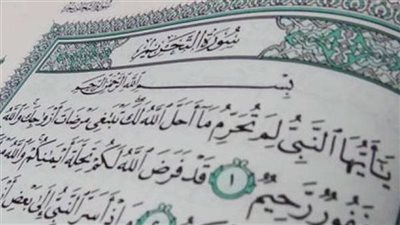 سُورَةُ التَّحْرِيمِ
بِسْمِ اللَّهِ الرَّحْمَٰنِ الرَّحِيمِ
يَٰٓأَيُّهَا ٱلنَّبِىُّ لِمَ تُحَرِّمُ مَآ أَحَلَّ ٱللَّهُ لَكَ تَبْتَغِى مَرْضَاتَ أَزْوَٰجِكَ وَٱللَّهُ
غَفُورٌ رَّحِيمٌ ١ قَدْ فَرَضَ ٱللَّهُ لَكُمْ تَحِلَّةَ أَيْمَٰنِكُمْ وَٱللَّهُ
٢ وَإِذْ أَسَرَّ ٱلنَّبِىُّ إِلَىٰ بَعْضِ